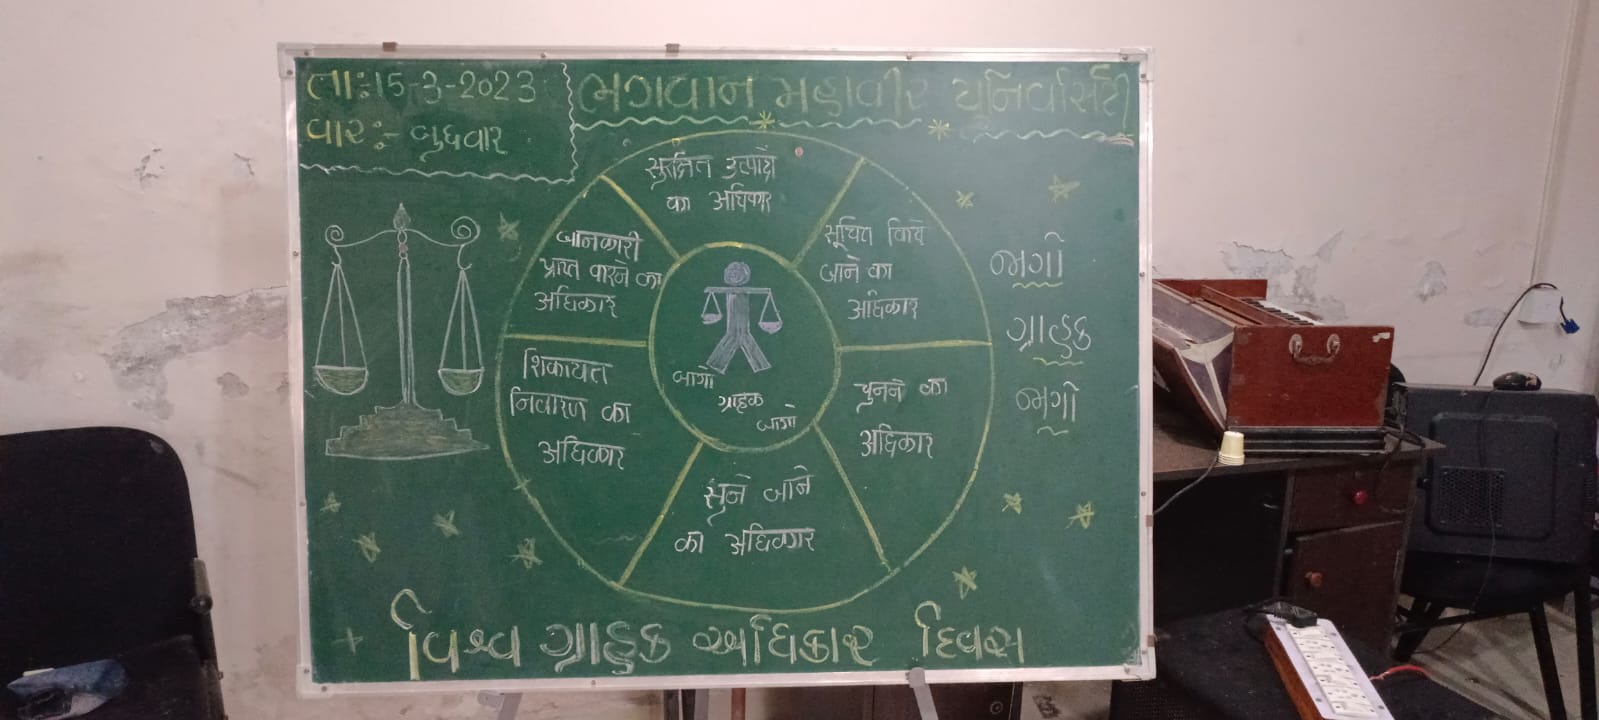 તા:15-3-2023
વાર:- બુધવાર
ભગવાન મહાવીર યુનિર્વાસટી
सुरक्षित उत्पादो
का अधिकार
सूचित किये
जाने का
अधिकार
चुनने का
अधिकार
सुने जाने
का अधिकार
शिकायत
निवारण का
अधिकार
जानकारी
प्राप्त करने का
अधिकार
जागो
ग्राहक
जागो
જાગો
ગ્રાહક
જાગો
વિશ્વ ગ્રાહક અધિકાર દિવસ